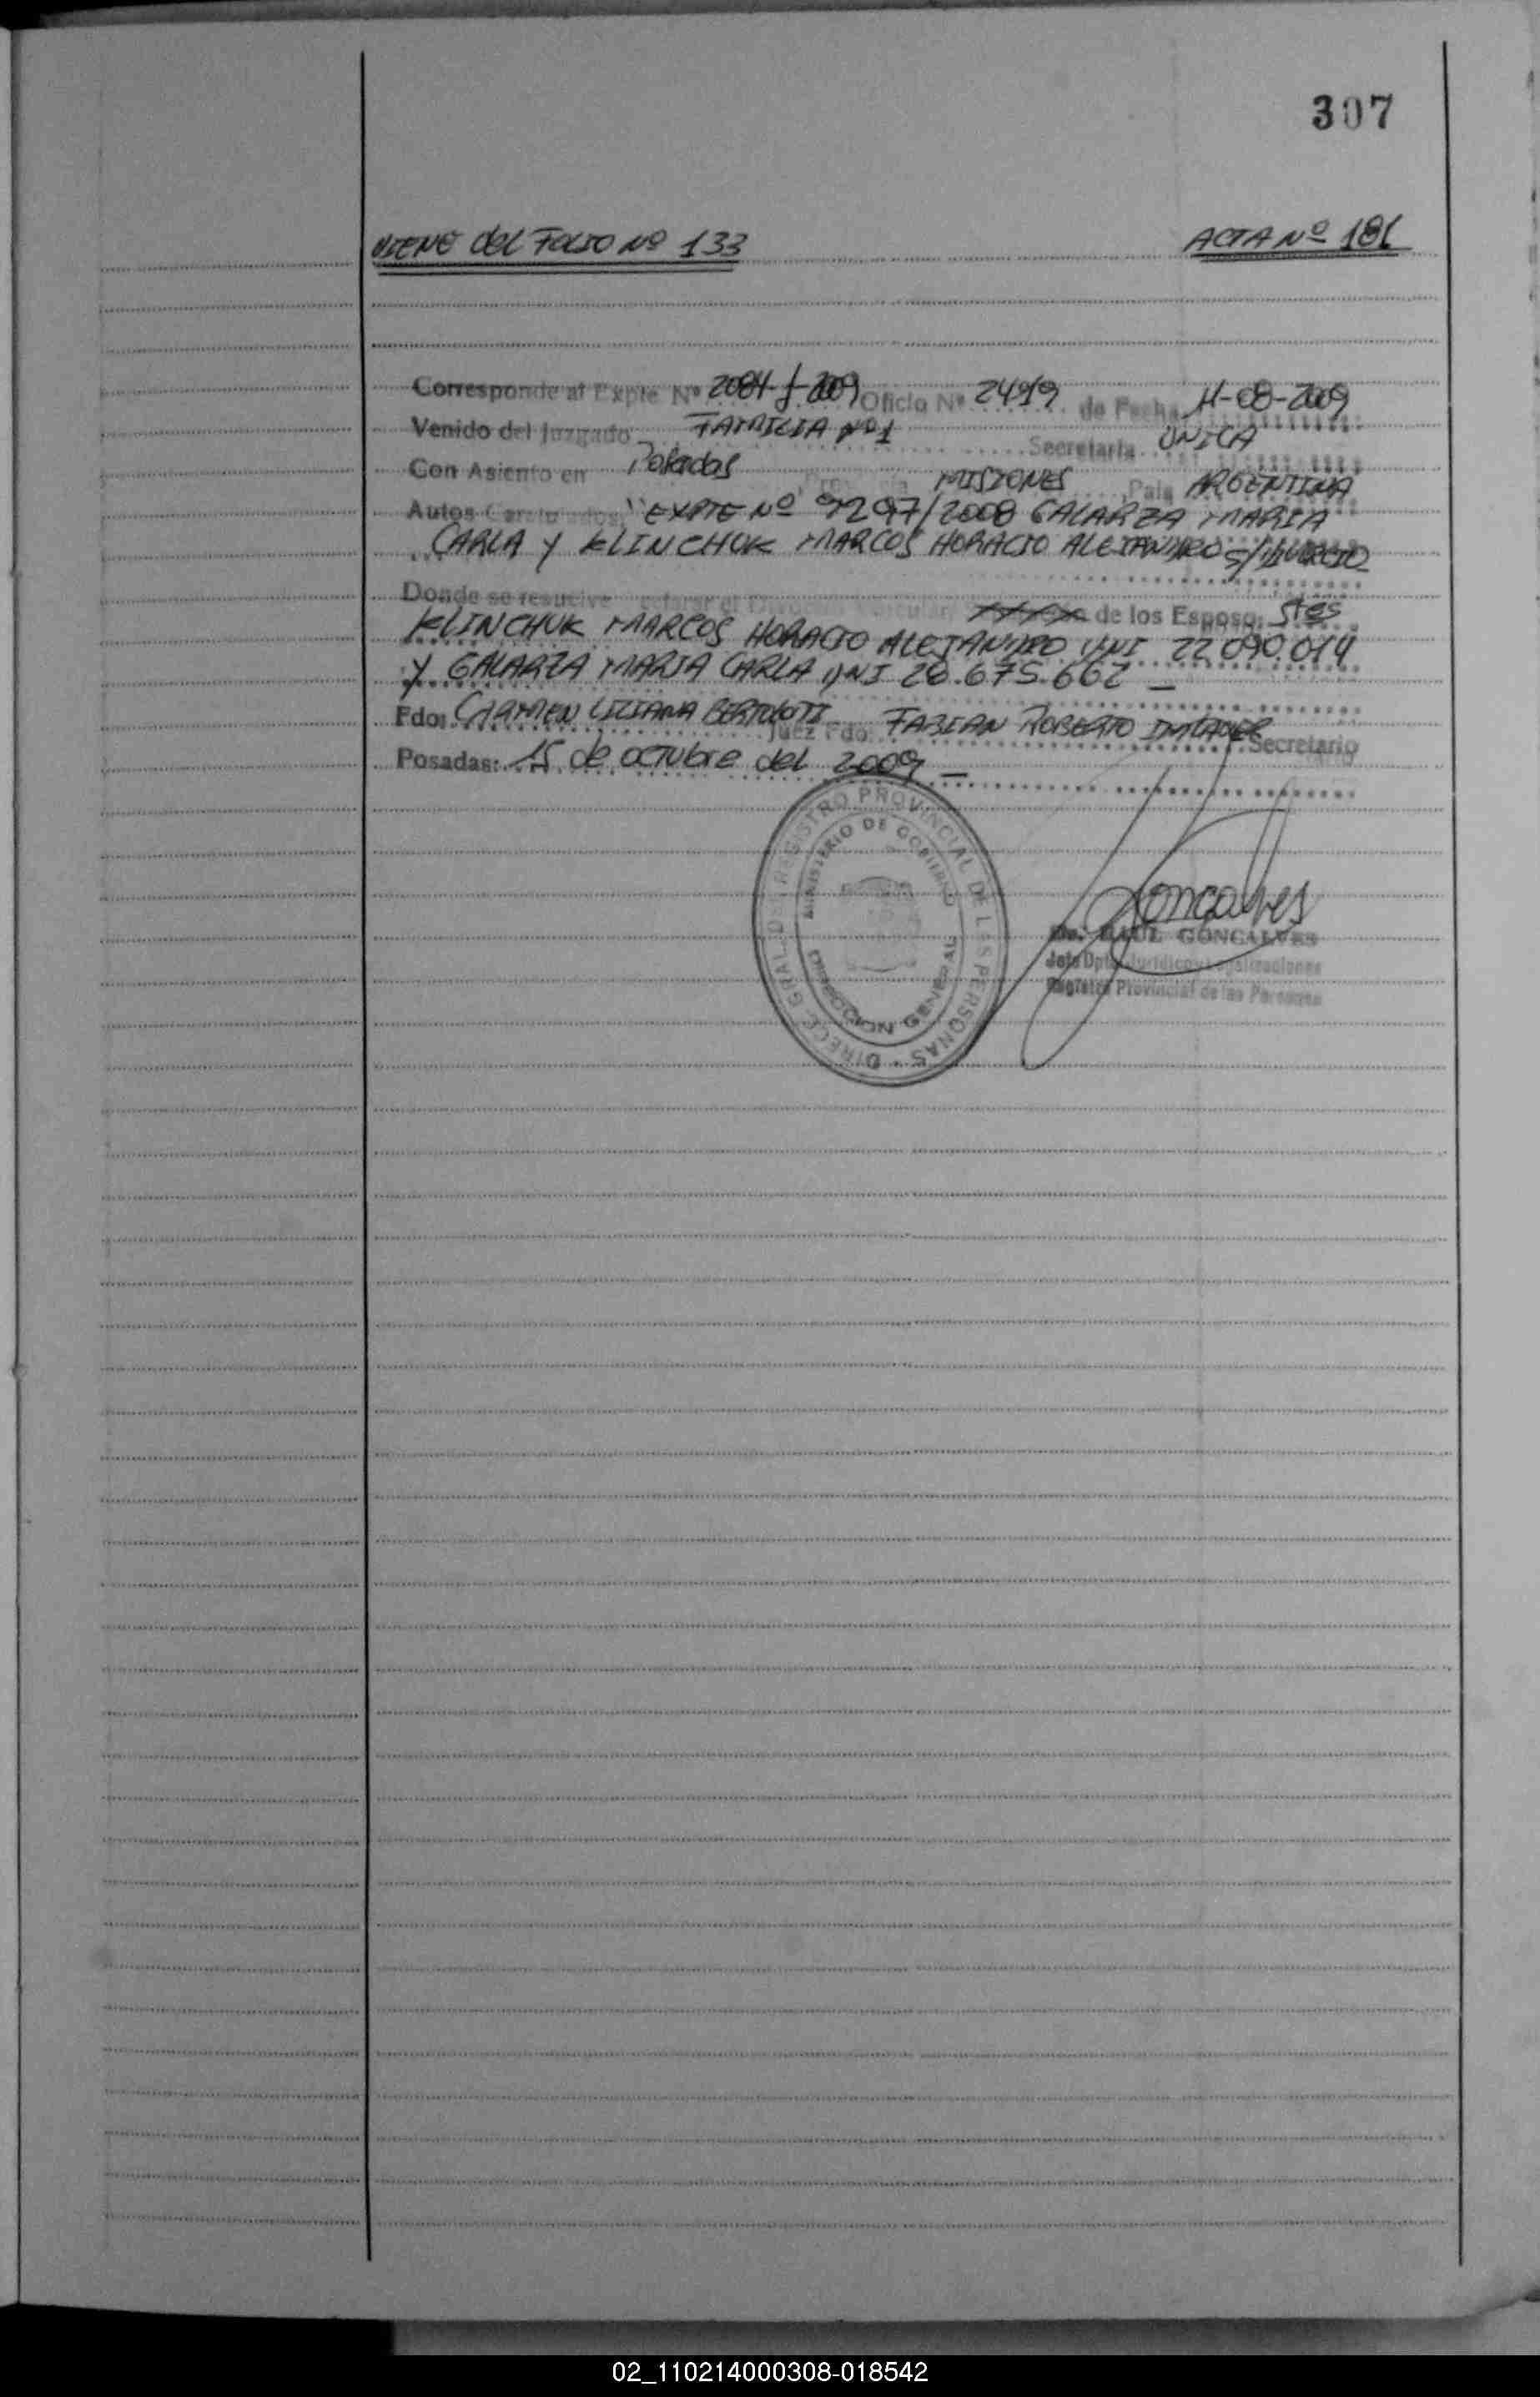 307
VIENE del FOLIO Nº 133 ACTA Nº 181
Corresponde al Expte Nº 2084-J-2009 Oficio Nº 2499 de Fecha 11-08-2009
Venido del Juzgado FAMILIA Nº 1 Secretaria UNICA
Con Asiento en Posadas Provincia MISIONES Pais ARGENTINA
Autos Caratulados: "EXPTE Nº 9297/2008 GALARZA MARIA
CARLA Y KLINCHUK MARCOS HORACIO ALEJANDRO S/ DIVORCIO
Donde se resuelve Declarar el Divorcio Vincular de los Esposo: Stes
KLINCHUK MARCOS HORACIO ALEJANDRO DNI 22.090.014
Y GALARZA MARIA CARLA DNI 28.675.662 —
Fdo: CARMEN LILIANA BERTOLOTTI Juez Fdo: FABIAN ROBERTO Secretario
Posadas: 15 de octubre del 2009 —
DIRECC. GRAL. DE REGISTRO PROVINCIAL DE LAS PERSONAS
MINISTERIO DE GOBIERNO
DIRECCION GENERAL
Goncalves
Dr. RAUL GONCALVES
Jefe Dpto. Juridico y Legalizaciones
Registro Provincial de las Personas
02_110214000308-018542